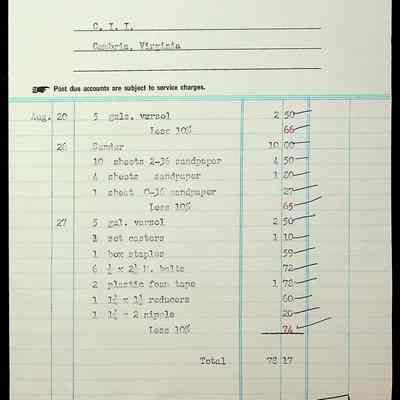 C. I. I.
Cambria, Virginia
Past due accounts are subject to service charges.
Aug. 20 5 gals. varsol 2 50
Less 10% 66
26 Sander 10 00
10 sheets 2-36 sandpaper 4 50
4 sheets sandpaper 1 20
1 sheet 0-36 sandpaper 27
Less 10% 65
27 5 gal. varsol 2 50
1 set casters 1 10
1 box staples 59
6 ½ x 2½ M. bolts 72
2 plastic foam tape 1 78
1 1½ x 1¼ reducers 60
1 1½ - 2 nipple 20
Less 10% 74
Total 78 17